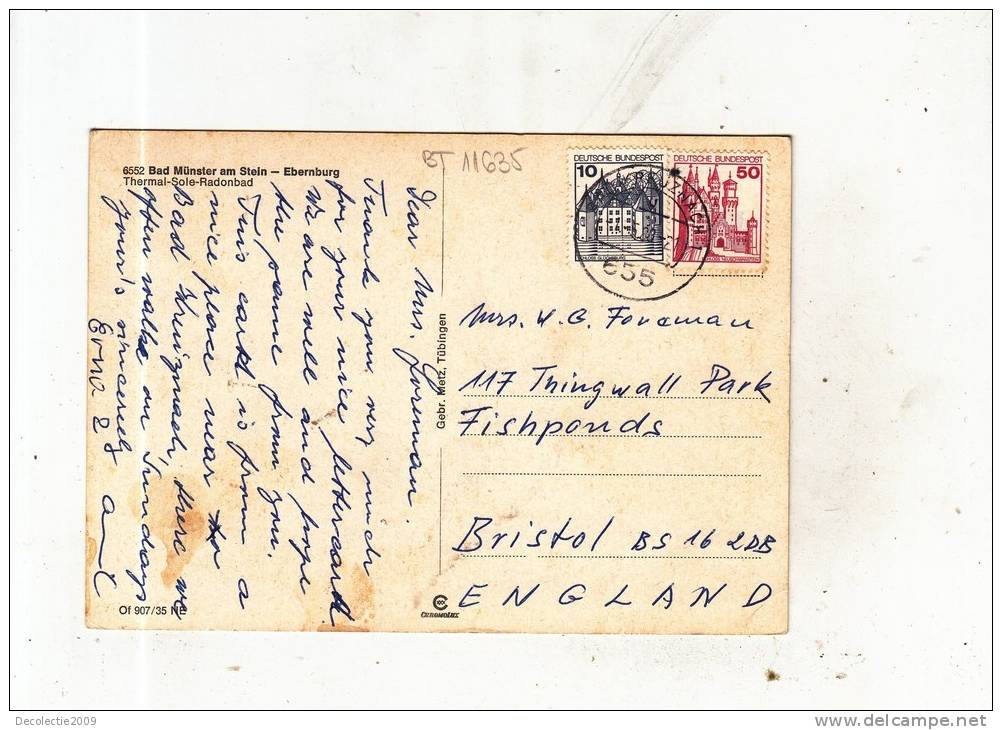 BT 11635
6552 Bad Münster am Stein – Ebernburg
Thermal-Sole-Radonbad
Dear Mrs. Foreman.
Thank you very much
for your nice lettercard.
We are well and hope
the same from you.
This card is from a
nice place near
Bad Kreuznach, there we
often walke on Sundays
Your's sincerely
Erna &
Gebr. Metz, Tübingen
Of 907/35 NE
CHROMOLUX
DEUTSCHE BUNDESPOST
10
SCHLOSS GLÜCKSBURG
DEUTSCHE BUNDESPOST
50
SCHLOSS NEUSCHWANSTEIN
KREUZNACH 1
655
Mrs. W. G. Foreman
117 Thingwall Park
Fishponds
Bristol BS 16 2DB
ENGLAND
Decolectie2009
delcampe.net